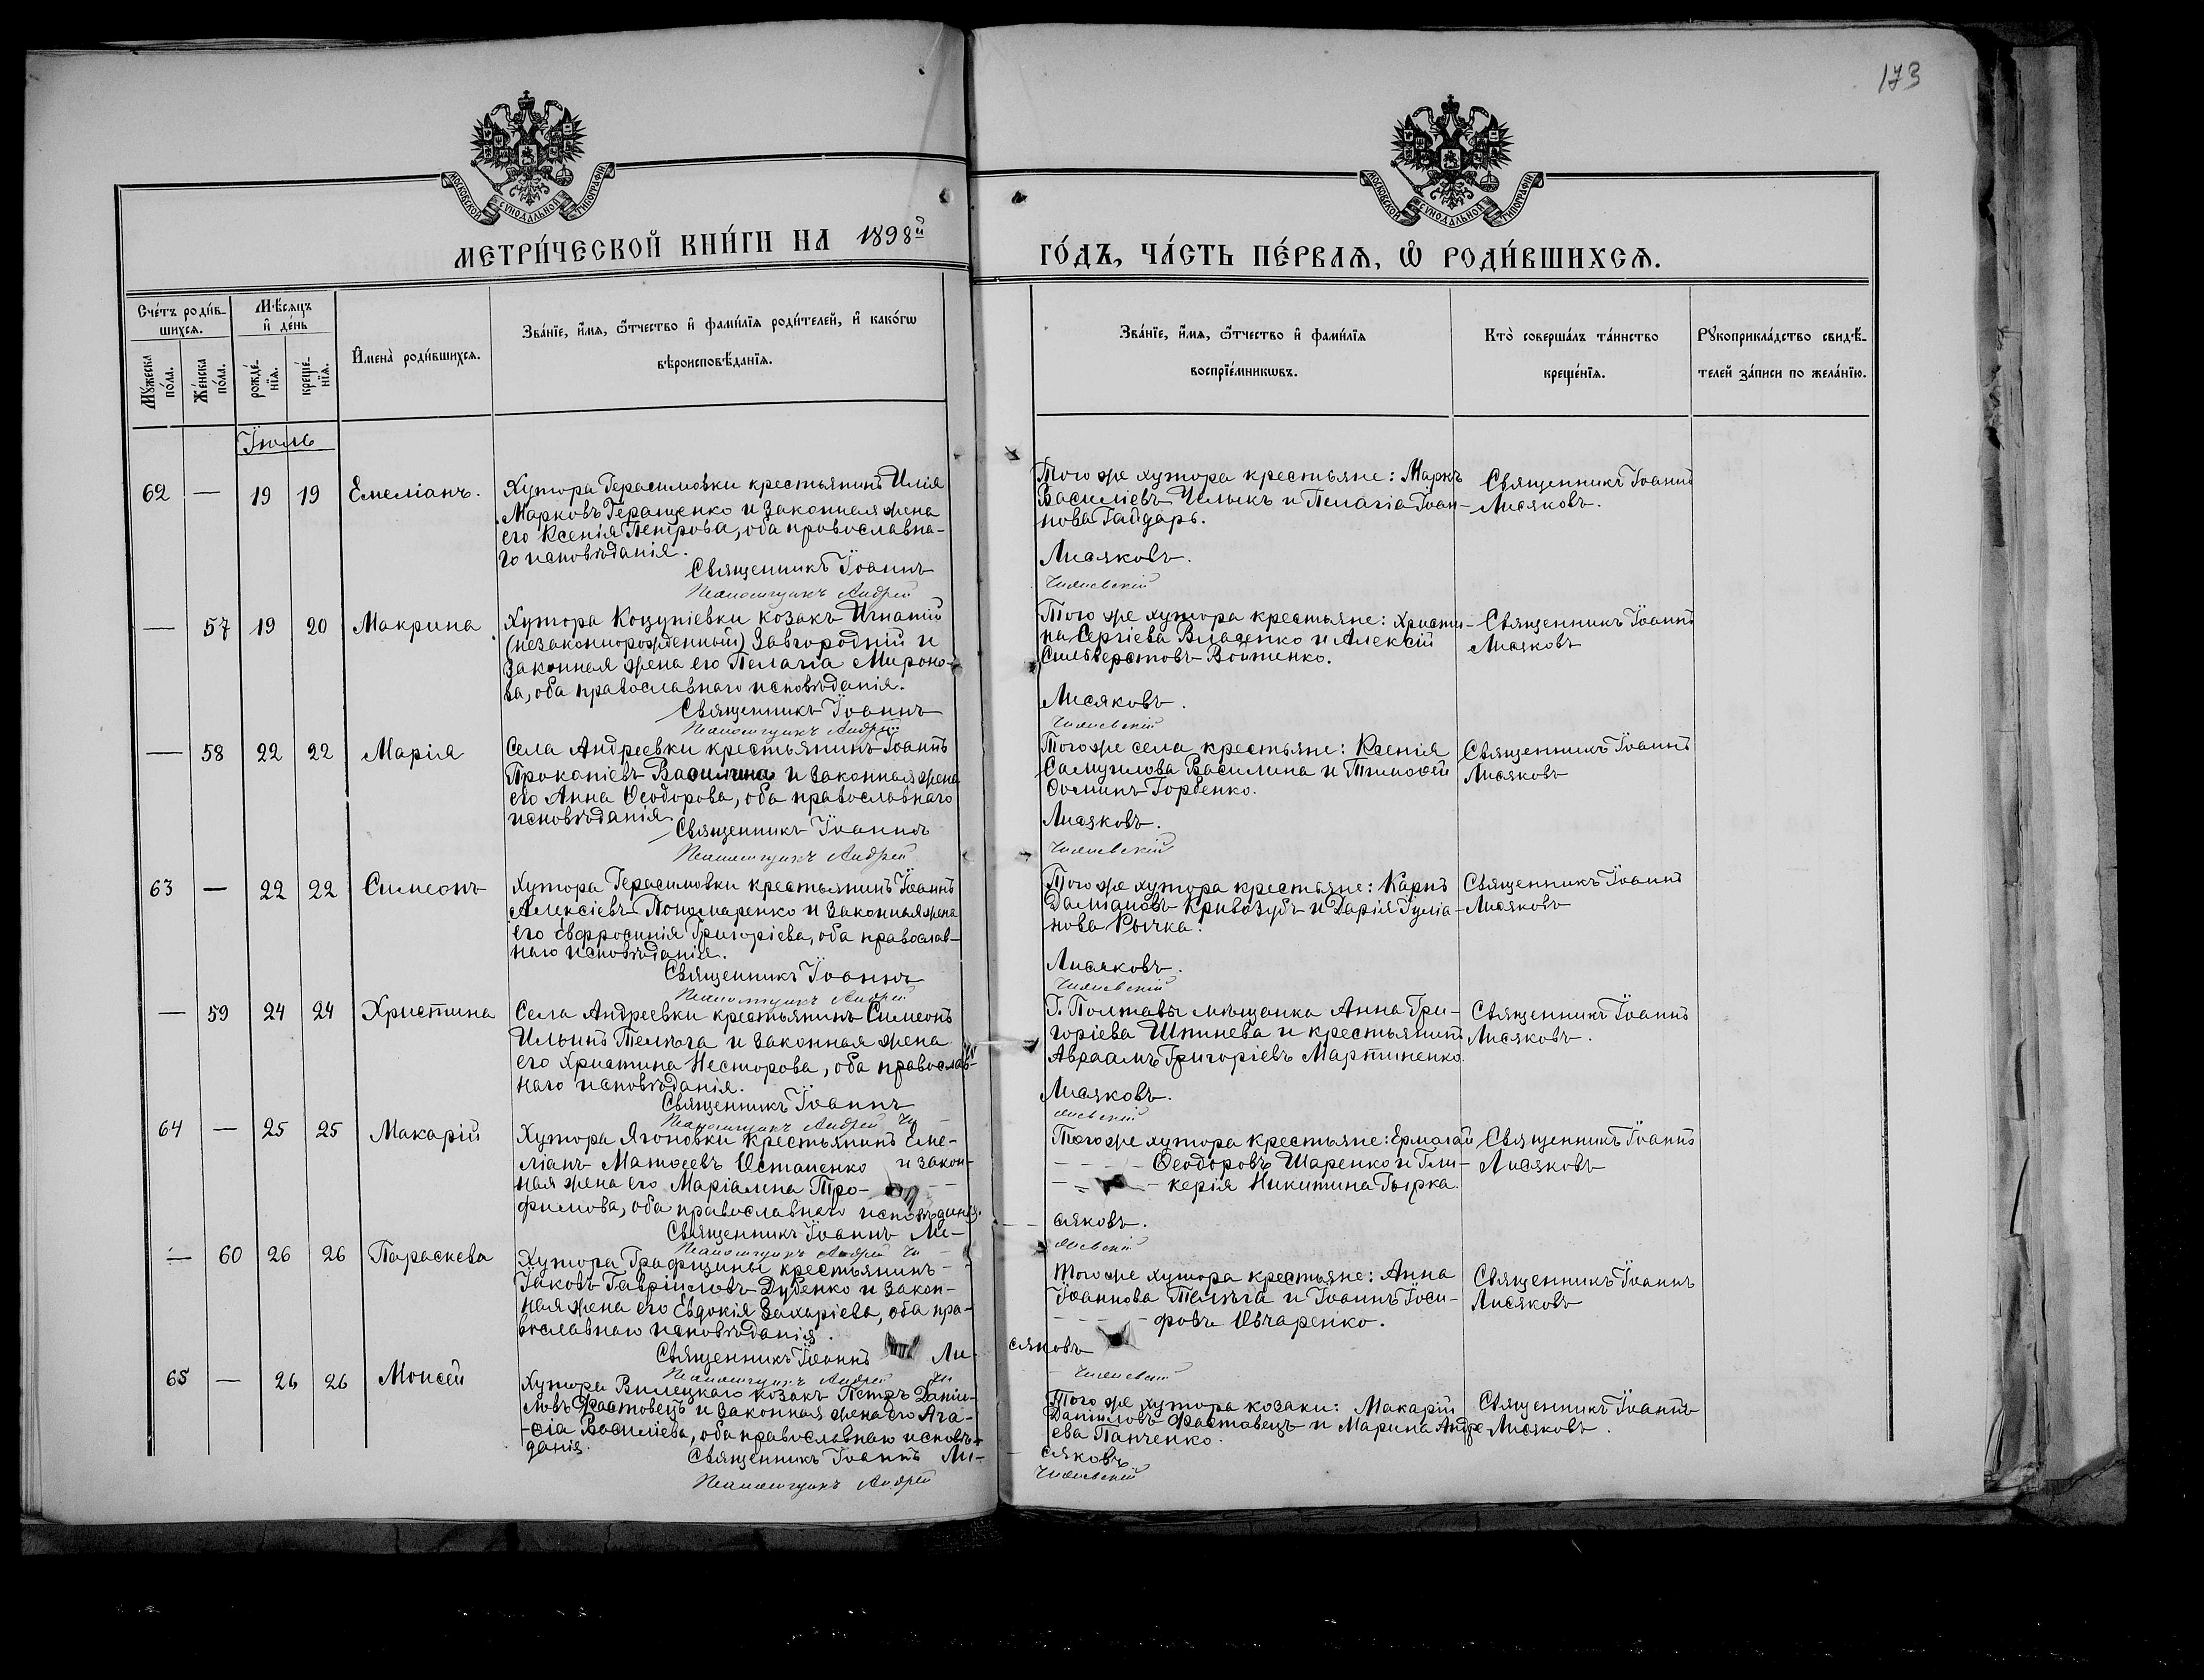 173
МОСКОВСКОЙ СѴНОДАЛЬНОЙ ТИПОГРАФІИ
МОСКОВСКОЙ СѴНОДАЛЬНОЙ ТИПОГРАФІИ
МЕТРИ́ЧЕСКОЙ КНИ́ГИ НА 1898й
ГО́ДЪ, ЧА́СТЬ ПЕ́РВАѦ, Ѽ РОДИ́ВШИХСѦ.
Сче́тъ роди́в-
шихсѧ.
Мꙋжеска
по́ла.
Же́нска
по́ла.
Мѣ́сѧцъ
и҆ де́нь
рожде́-
нїѧ.
креще́-
нїѧ.
И҆мена̀ роди́вшихсѧ.
Зва́нїе, и҆́мѧ, ѻ҆́тчество и҆ фами́лїѧ роди́телей, и҆ како́гѡ
вѣроисповѣ́данїѧ.
Зва́нїе, и҆́мѧ, ѻ҆́тчество и҆ фами́лїѧ
воспрїе́мникѡвъ.
Кто̀ соверша́лъ та́инство
креще́нїѧ.
Рꙋкоприкла́дство свидѣ́-
телей за́писи по жела́нїю.
Іюль
62 — 19 19 Емеліанъ.
Хутора Герасимовки крестьянинъ Илія
Марковъ Геращенко и законная жена
его Ксенія Петрова, оба православна-
го исповѣданія.
Священникъ Іоаннъ
Псаломщикъ Андрей
Того же хутора крестьяне: Маркъ
Василіевъ Чилыкъ и Пелагія Іоан-
нова Гайдарь.
Лисяковъ.
Священникъ Іоаннъ
Лисяковъ.
— 57 19 20 Макрина
Хутора Коцупіевки козакъ Игнатій
(незаконнорожденный) Завгородній и
законная жена его Пелагія Миροно-
ва, оба православнаго исповѣданія.
Священникъ Іоаннъ
Псаломщикъ Андрей
Того же хутора крестьяне: Христи-
на Сергіева Власенко и Алексій
Сильверстовъ Войтенко.
Лисяковъ.
Священникъ Іоаннъ
Лисяковъ
— 58 22 22 Марія
Села Андреевки крестьянинъ Іоаннъ
Прокопіевъ Василина и законная жена
его Анна Ѳеодорова, оба православнаго
исповѣданія
Священникъ Іоаннъ
Псаломщикъ Андрей
Того же села крестьяне: Ксенія
Самуилова Василина и Тимоѳей
Ѳоминъ Горбенко.
Лисяковъ.
Священникъ Іоаннъ
Лисяковъ
63 — 22 22 Симеонъ
Хутора Герасимовки крестьянинъ Іоаннъ
Алексіевъ Пономаренко и законная жена
его Евфросинія Григоріева, оба православ-
наго исповѣданія.
Священникъ Іоаннъ
Псаломщикъ Андрей
Того же хутора крестьяне: Карпъ
Даміановъ Кривозубъ и Дарія Іуліа-
нова Рычка.
Лисяковъ.
Священникъ Іоаннъ
Лисяковъ
— 59 24 24 Христина
Села Андреевки крестьянинъ Симеонъ
Ильинъ Телѣга и законная жена
его Христина Несторова, оба православ-
наго исповѣданія.
Священникъ Іоаннъ
Псаломщикъ Андрей
Г. Полтавы мѣщанка Анна Гри-
горіева Штинева и крестьянинъ
Авраамъ Григоріевъ Мартиненко.
Лисяковъ.
Священникъ Іоаннъ
Лисяковъ.
64 — 25 25 Макарій
Хутора Ягоновки крестьянинъ Еме-
ліанъ Матѳеевъ Остапенко и закон-
ная жена его Маріамна Тро-
фимова, оба православнаго исповѣданія.
Священникъ Іоаннъ Ли-
Псаломщикъ Андрей
Того же хутора крестьяне: Ермолай
Ѳеодоровъ Шаренко и Гли-
керія Никитина Гырка.
сяковъ.
Священникъ Іоаннъ
Лисяковъ
— 60 26 26 Параскева
Хутора Графщины крестьянинъ
Іаковъ Гавріиловъ Дубенко и закон-
ная жена его Евдокія Захаріева, оба пра-
вославнаго исповѣданія.
Священникъ Іоаннъ Ли-
Псаломщикъ Андрей
Того же хутора крестьяне: Анна
Іоаннова Телѣга и Іоаннъ Іоси-
фовъ Овчаренко.
сяковъ
Священникъ Іоаннъ
Лисяковъ
65 — 26 26 Моисей
Хутора Вилецкаго козакъ Петръ Даніи-
ловъ Фастовецъ и законная жена его Ага-
ѳія Василіева, оба православнаго исповѣ-
данія.
Священникъ Іоаннъ Ли-
Псаломщикъ Андрей
Того же хутора козаки: Макарій
Даніиловъ Фастовецъ и Марина Андре-
ева Панченко.
сяковъ
Священникъ Іоаннъ
Лисяковъ.